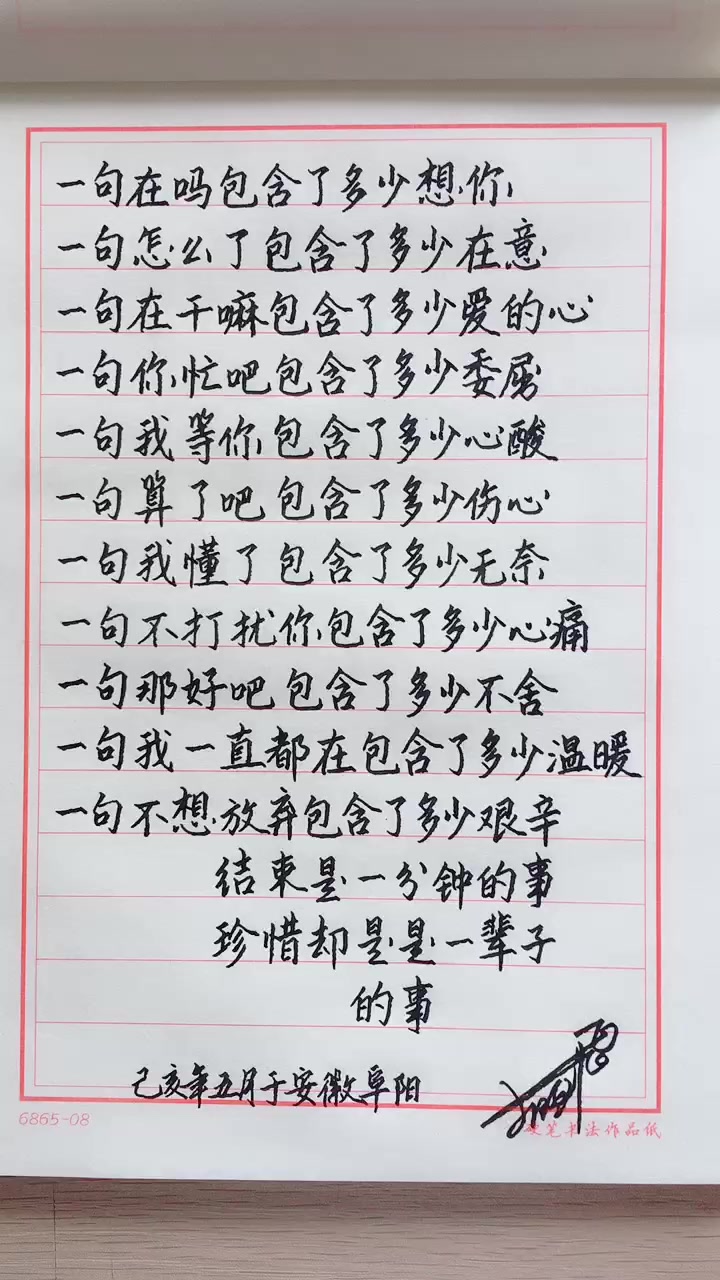 一句在吗包含了多少想你
一句怎么了包含了多少在意
一句在干嘛包含了多少爱的心
一句你忙吧包含了多少委屈
一句我等你包含了多少心酸
一句算了吧包含了多少伤心
一句我懂了包含了多少无奈
一句不打扰你包含了多少心痛
一句那好吧包含了多少不舍
一句我一直都在包含了多少温暖
一句不想放弃包含了多少艰辛
结束是一分钟的事
珍惜却是是一辈子
的事
己亥年五月于安徽阜阳
6865-08
硬笔书法作品纸